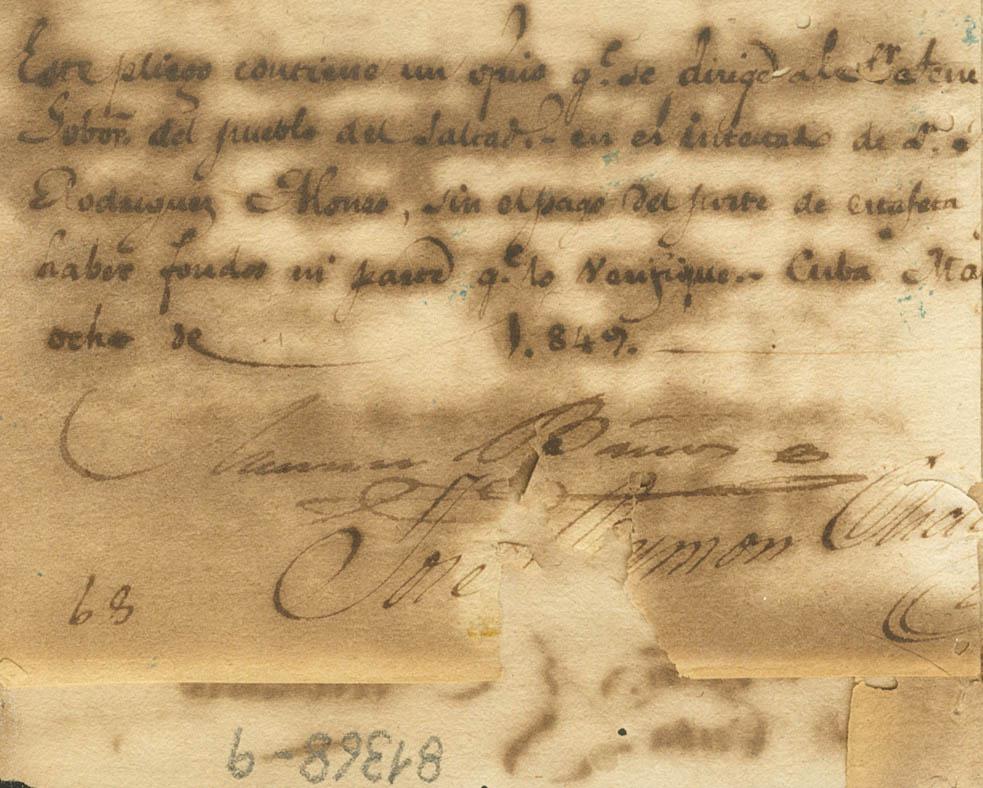 Este pliego contiene un ofisio q.e se dirige al Sr.
Gobor. del pueblo del Saltad.- en el intestado de D.
Rodriguez Alonso, sin el pago del porte de estafeta
haber fondos ni parte q.e lo verifique.- Cuba Ma
ocho de 1.849.
Ramon Baños
Jose Raymon
68
81368-9